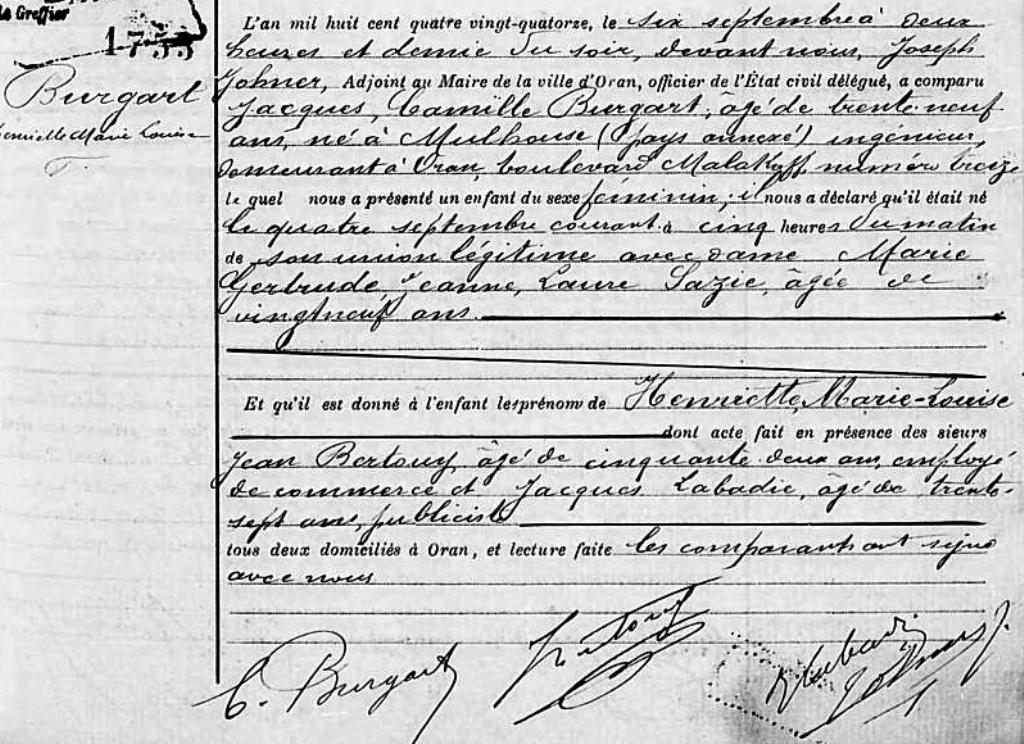 Le Greffier
1755
Burgart
Henriette Marie Louise
L'an mil huit cent quatre vingt-quatorze, le six septembre à deux
heures et demie du soir, devant nous, Joseph
Johner, Adjoint au Maire de la ville d'Oran, officier de l'État civil délégué, a comparu
Jacques, Camille Burgart, agé de trente-neuf
ans, né à Mulhouse (pays annexé) ingénieur,
demeurant à Oran, boulevard Malakoff, numéro treize
le quel nous a présenté un enfant du sexe féminin; il nous a déclaré qu'il était né
le quatre septembre courant à cinq heures du matin
de son union légitime avec dame Marie
Gertrude, Jeanne, Laure Lazie, âgée de
vingt neuf ans.
Et qu'il est donné à l'enfant les prénoms de Henriette, Marie-Louise
dont acte fait en présence des sieurs
Jean Bertouy, âgé de cinquante deux ans, employé
de commerce et Jacques Labadie, âgé de trente-
sept ans, publiciste
tous deux domiciliés à Oran, et lecture faite les comparants ont signé
avec nous
C. Burgart